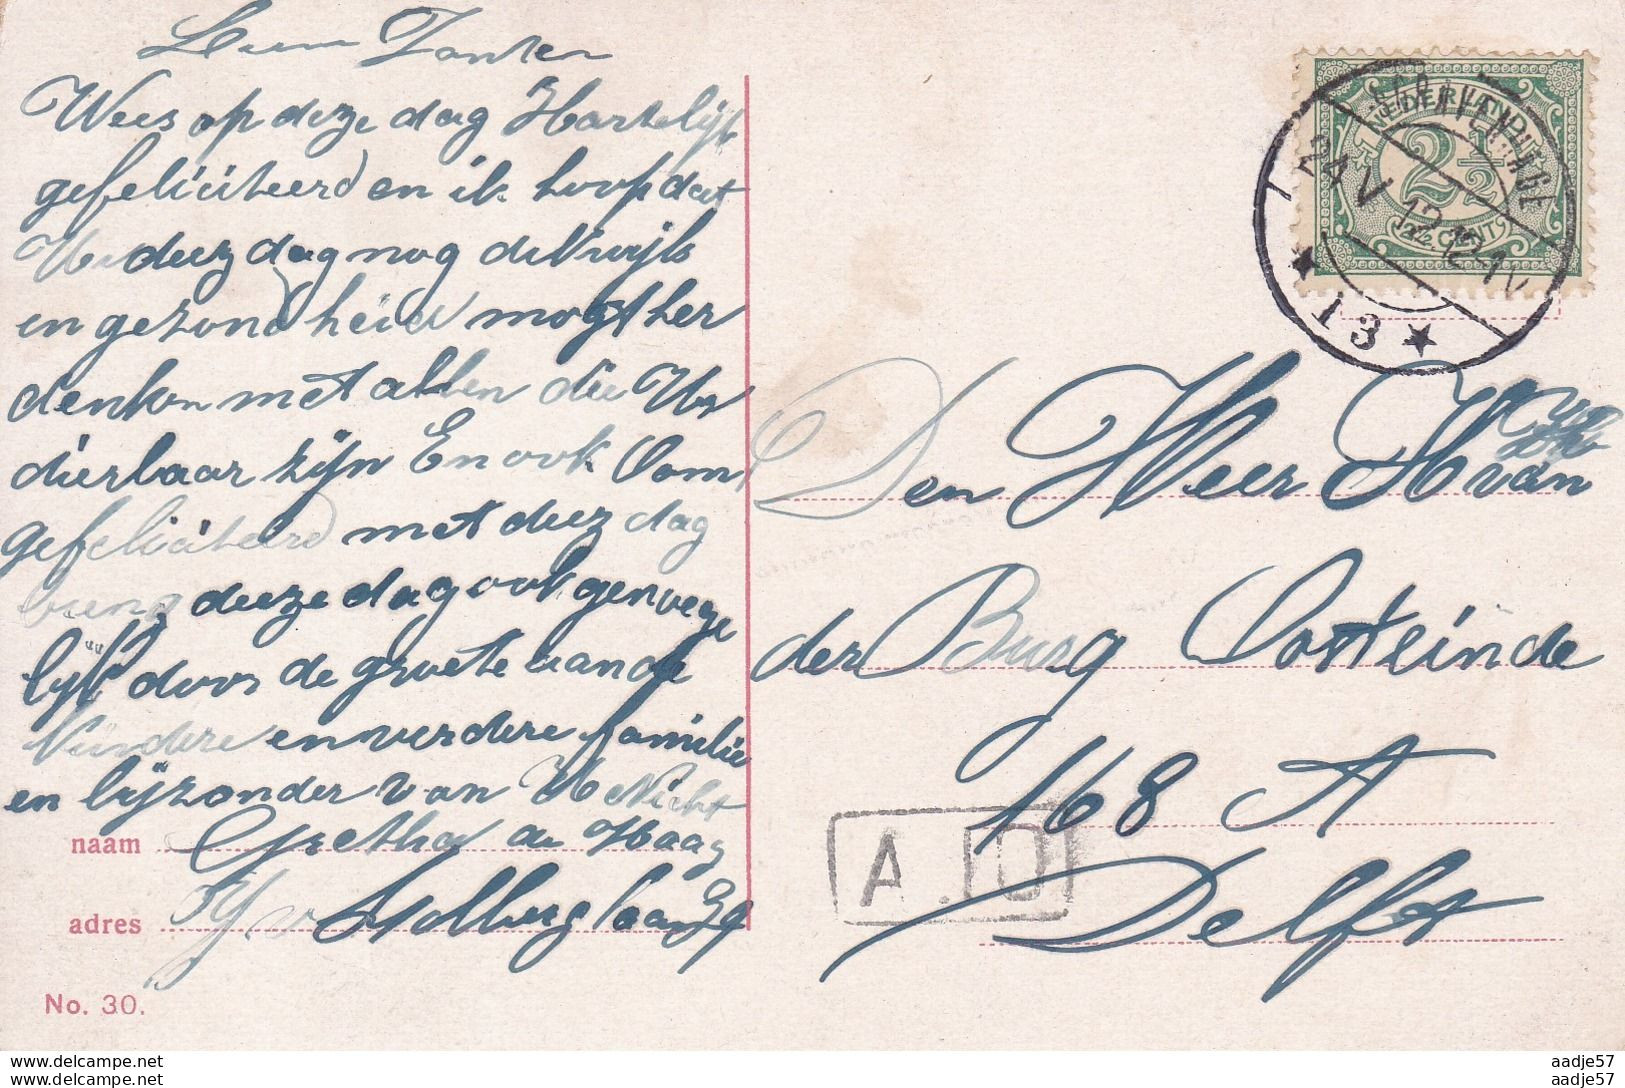 Tante
Wees op deze dag Hartelijk
gefeliciteerd en ik hoop dat
U deez dag nog dikwijls
en gezondheid mogt her
denken met allen die Uw
dierbaar zijn En ook Oom
gefeliciteerd met deez dag
deeze dag ook genoege
lijk door de groete van de
kindere en verdere familie
en bijzonder van U Nicht
naam Gretha den Haag
adres Stolberglaan 39
No. 30.
NEDERLAND
2½
CENT
'S GRAVENHAGE
24 V 12 12-1 N
13
Den Heer H van
der Burg Oosteinde
168 A
Delft
A.
www.delcampe.net
www.delcampe.net
aadje57
aadje57